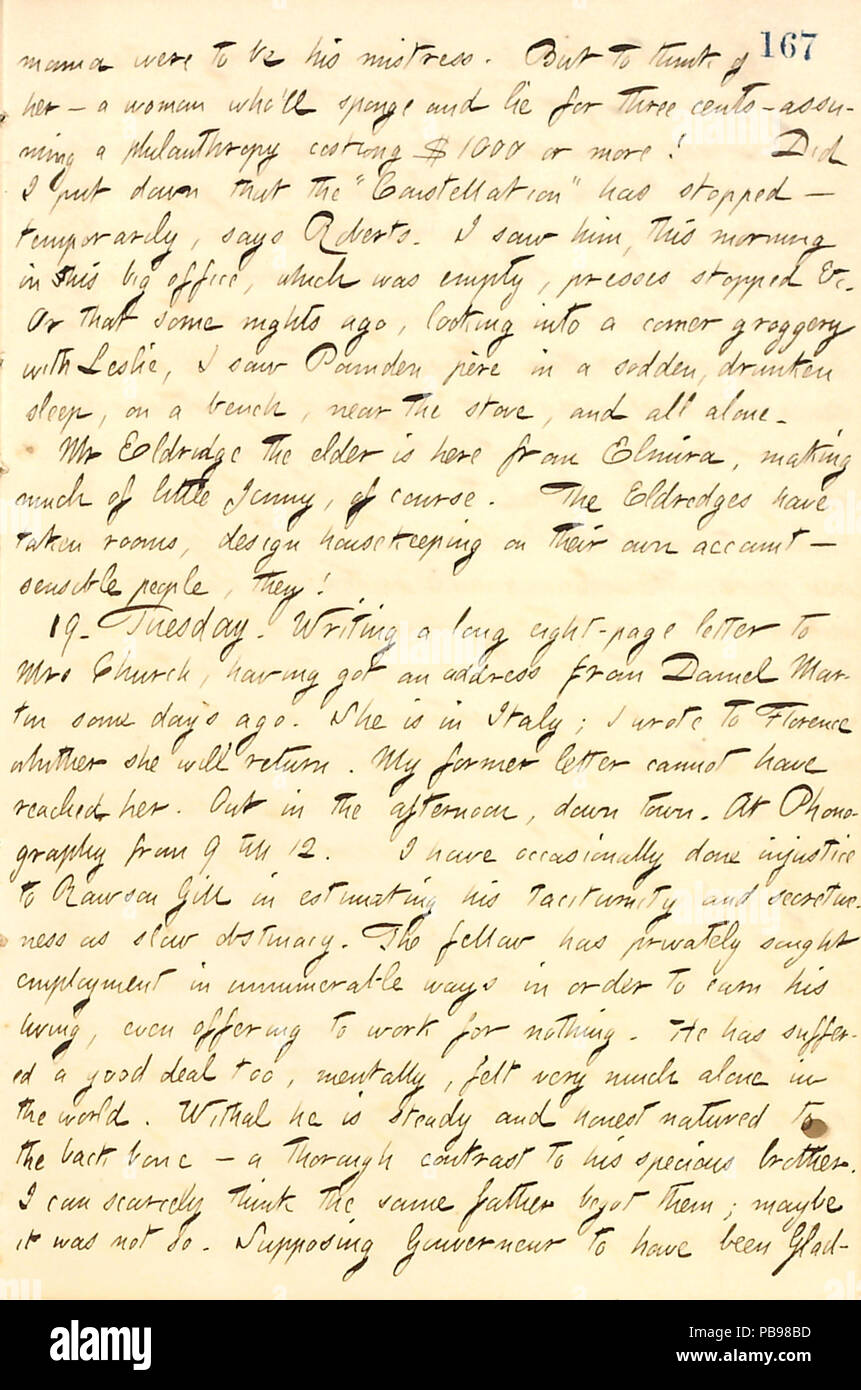 167
mama were to be his mistress. But to think of
her — a woman who'll sponge and lie for three cents — assu-
ming a philanthropy costing $1000 or more! Did
I put down that the "Constellation" has stopped —
temporarily, says Roberts. I saw him, this morning
in his big office, which was empty, presses stopped &c.
Or that some nights ago, looking into a corner groggery
with Leslie, I saw Pounden père in a sodden, drunken
sleep, on a bench, near the stove, and all alone.
Mr Eldredge the elder is here from Elmira, making
much of little Jenny, of course. The Eldredges have
taken rooms, design housekeeping on their own account —
sensible people, they!
19. Tuesday. Writing a long eight-page letter to
Mrs Church, having got an address from Daniel Mar-
tin some days ago. She is in Italy; I wrote to Florence
whither she will return. My former letter cannot have
reached her. Out in the afternoon, down town. At Phono-
graphy from 9 till 12. I have occasionally done injustice
to Rawson Gill in estimating his taciturnity and secretive-
ness as slow obstinacy. The fellow has privately sought
employment in innumerable ways in order to earn his
living, even offering to work for nothing. He has suffer-
ed a good deal too, mentally, felt very much alone in
the world. Withal he is steady and honest natured to
the back bone — a thorough contrast to his specious brother.
I can scarcely think the same father begot them; maybe
it was not so. Supposing Gouverneur to have been Glad-
alamy
Image ID: PB98BD
www.alamy.com